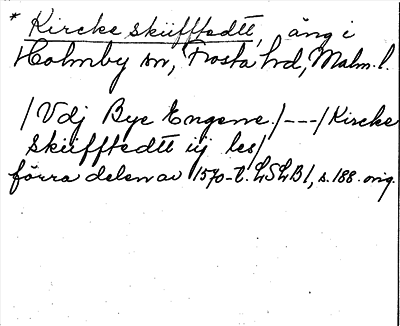 * Kircke skiifftedtt, äng i
Holmby sn, Frosta hd, Malm. l.
/Vdj Bye Engene./---/Kircke
skiifftedtt iij les/
förra delen av 1570-t. LSLB 1, s. 188. orig.